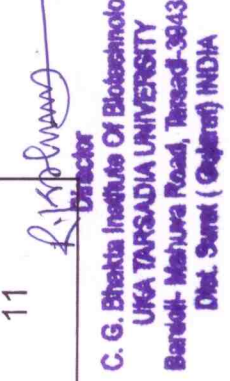 11
Director
C. G. Bhakta Institute Of Biotechnolo
UKA TARSADIA UNIVERSITY
Bardoli- Mahuva Road, Tarsadi-3943
Dist. Surat ( Gujarat) INDIA